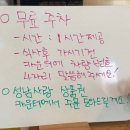 ○ 무료 주차
- 시간 : 1시간 제공
- 식사후 가시기전
카운터에 차량번호
4자리 말씀해주세요!
○ 성남사랑 상품권
카운터에서